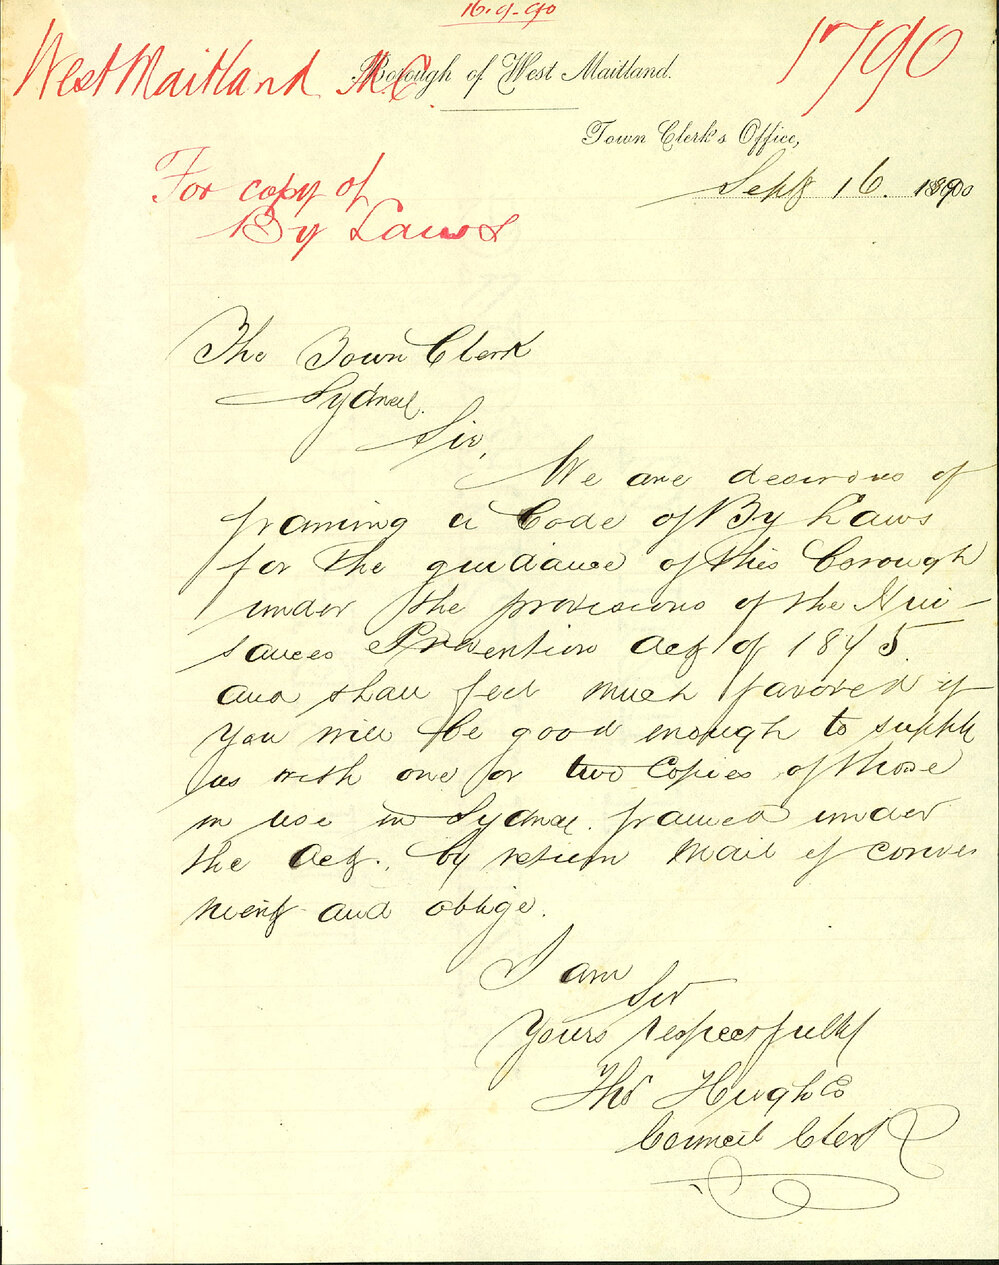 16.9.90
West Maitland M.C.
1790
Borough of West Maitland.
Town Clerk's Office,
Sept 16. 1890
For copy of
By Laws
The Town Clerk
Sydney.
Sir,
We are desirous of
framing a Code of By Laws
for the guidance of this Borough
under the provisions of the Nui-
sances Prevention Act of 1875
and shall feel much favored if
you will be good enough to supply
us with one or two Copies of those
in use in Sydney. framed under
the Act. by return Mail if conve
nient and oblige.
I am
Sir
Yours respectfully
Thos Hughes
Council Clerk